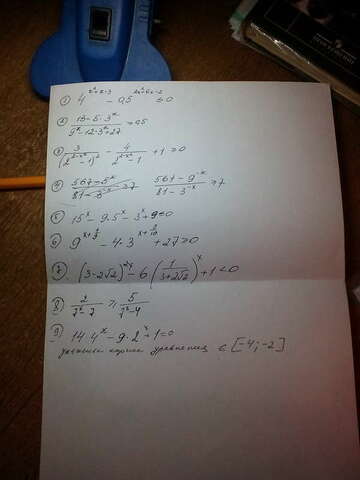 ① 4^(x²+x-3) - 0,5^(2x²-6x-2) ≤ 0
② (15-5·3^x)/(9^x-12·3^x+27) ≥ 0,5
③ 3/(2^(2-x²)-1)² - 4/(2^(2-x²)-1) + 1 ≥ 0
④ (567-9^(-x))/(81-3^(-x)) ≥ 7
⑤ 15^x - 9·5^x - 3^x + 9 ≤ 0
⑥ - 4·3 + 27 ≥ 0
⑦ (3-2√2) - 6(1/(3+2√2))^x + 1 < 0
⑧ 2/(7^x-7) ≥ 5/(7^x-4)
⑨ 14·4^x - 9·2^x + 1 = 0
корни уравнения ∈ [-4; -2]